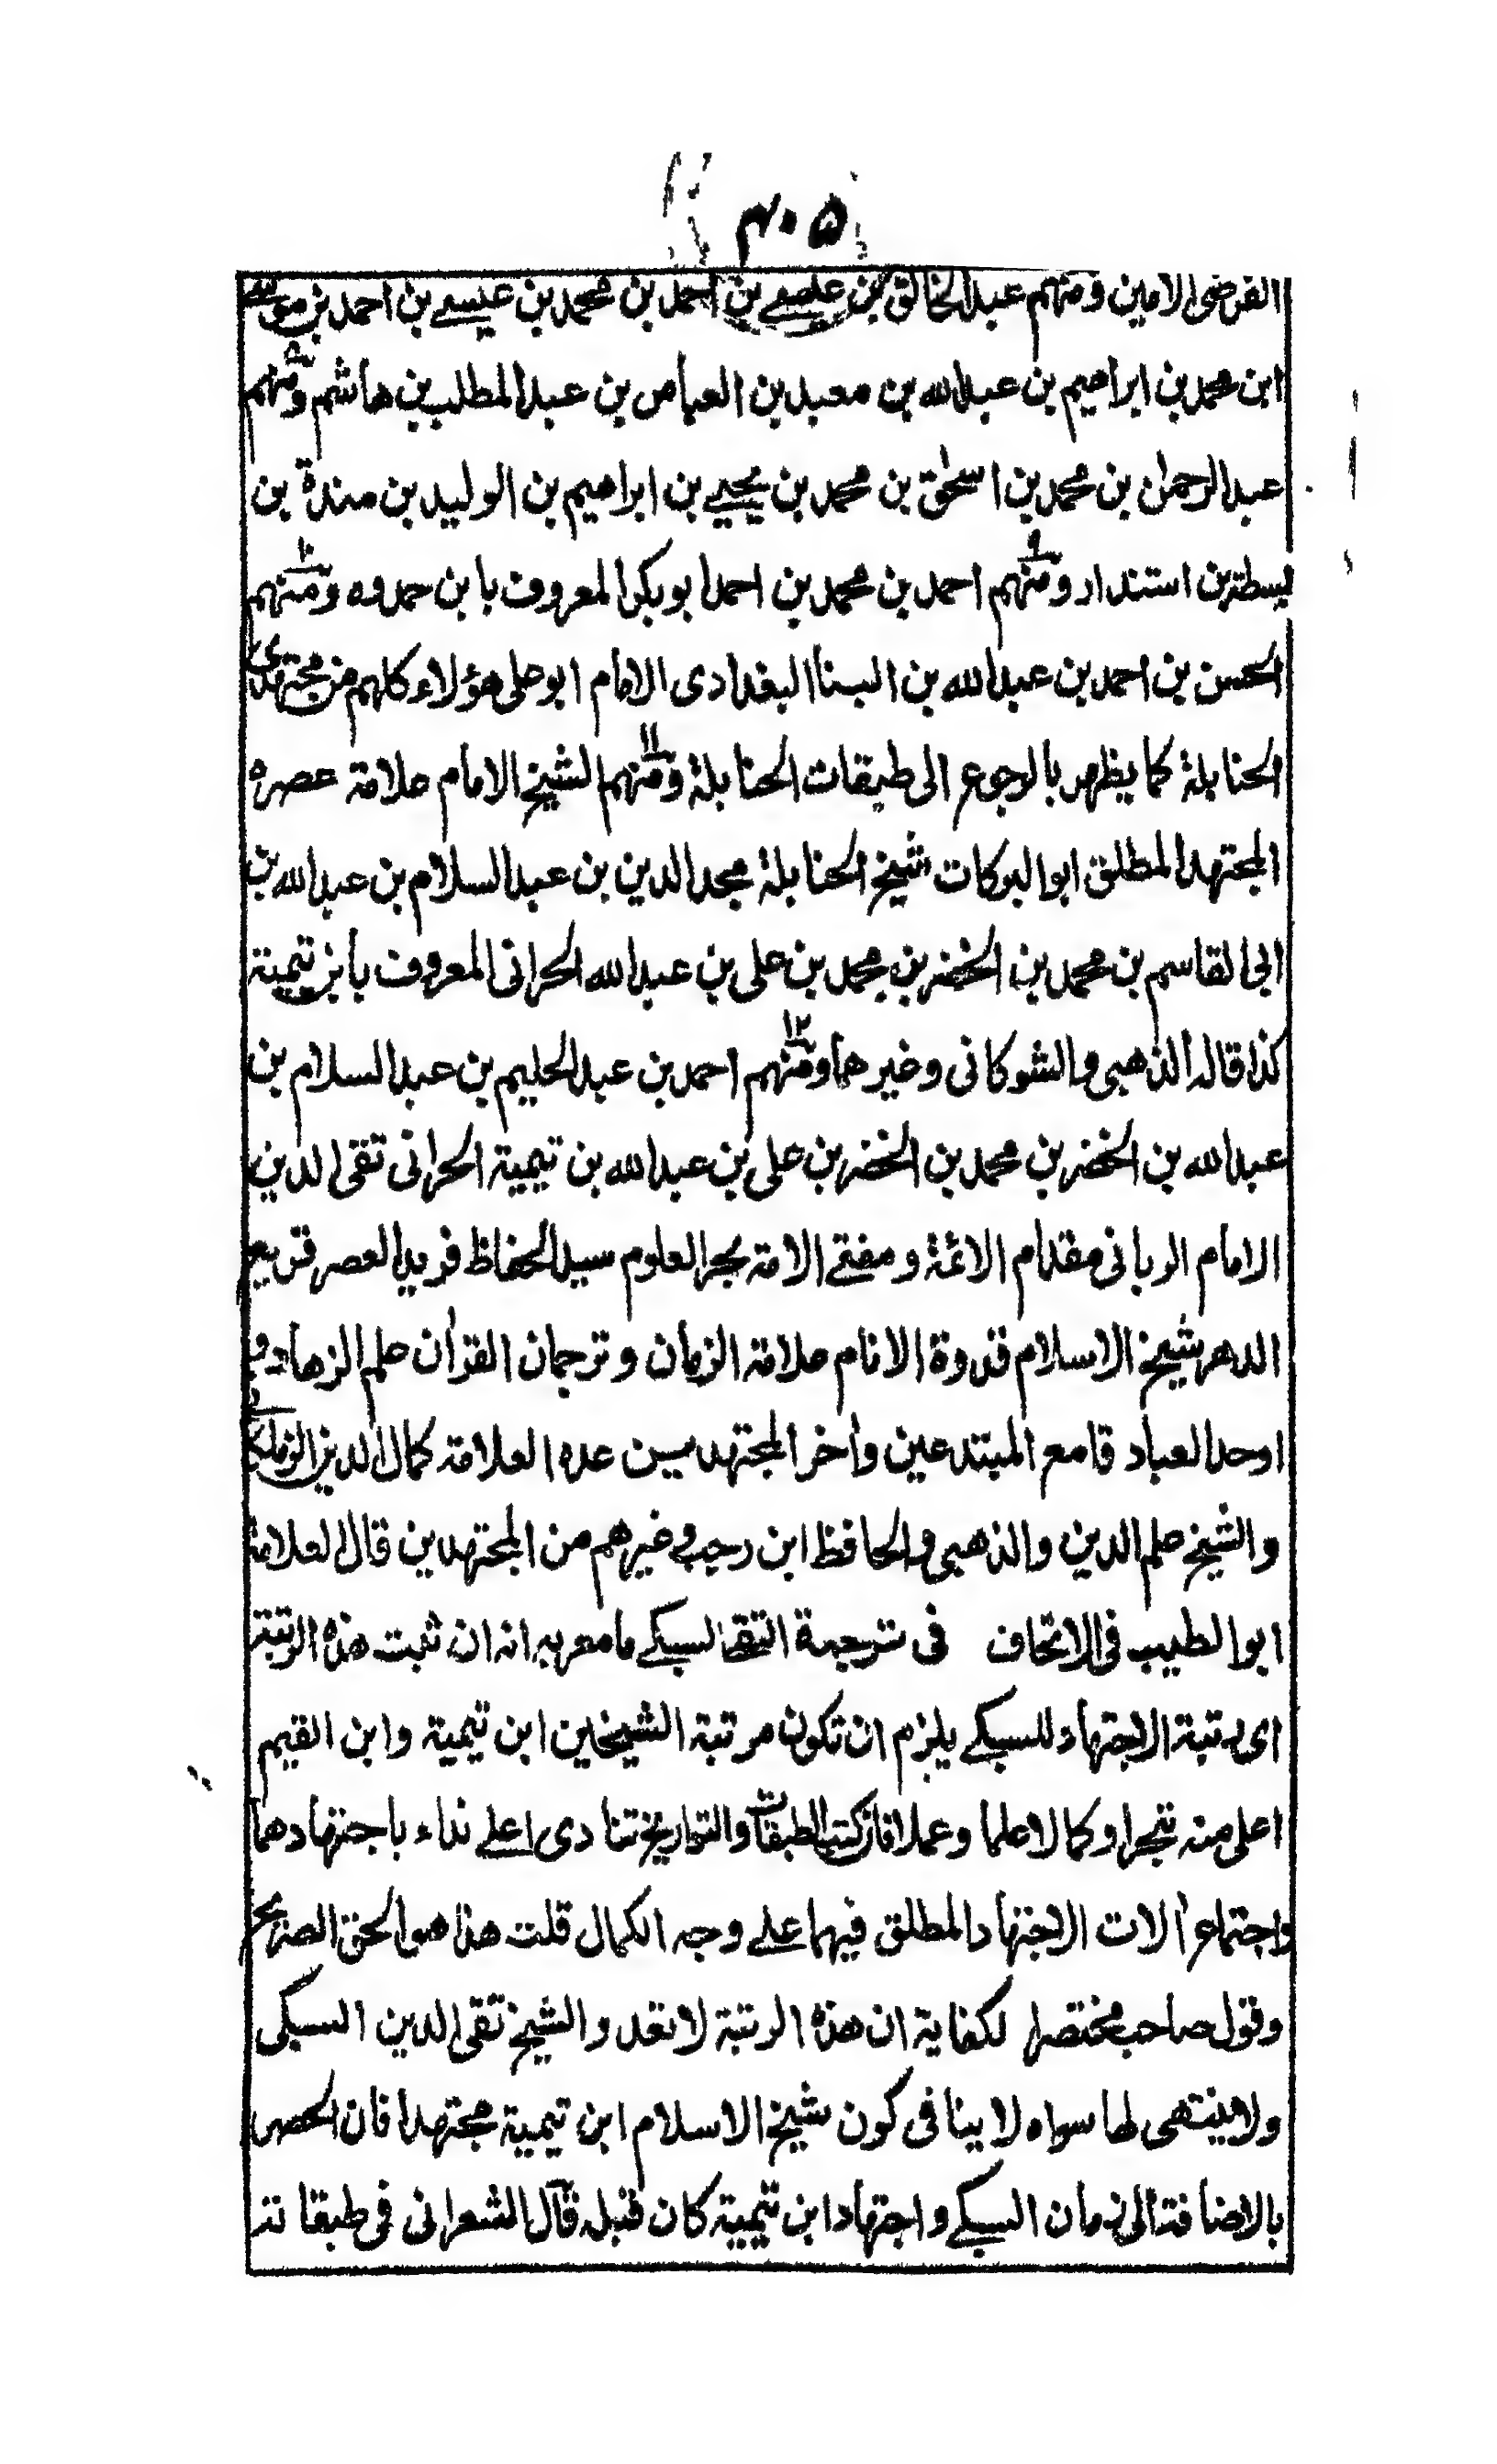 ۴۰۵
الفرضی الامین ومنهم عبدالخالق بن عیسے بن احمد بن محمد بن عیسے بن احمد بن موسے
ابن محمد بن ابراهیم بن عبدالله بن معبد بن العباس بن عبدالمطلب بن هاشم ومنهم
عبدالرحمن بن محمد بن اسحٰق بن محمد بن یحییے بن ابراهیم بن الولید بن مندة بن
بسطة بن استندار ومنهم احمد بن محمد بن احمد ابوبکر المعروف بابن حمدوه ومنهم
الحسن بن احمد بن عبدالله بن البنا البغدادی الامام ابوعلی هؤلاء کلهم من مجتهدی
الحنابلة کما یظهر بالرجوع الی طبقات الحنابلة ومنهم الشیخ الامام علامة عصره
المجتهد المطلق ابوالبرکات شیخ الحنابلة مجدالدین بن عبدالسلام بن عبدالله بن
ابی القاسم بن محمد بن الخضر بن محمد بن علی بن عبدالله الحرانی المعروف بابن تیمیة
کذا قاله الذهبی والشوکانی وغیرهما ومنهم احمد بن عبدالحلیم بن عبدالسلام بن
عبدالله بن الخضر بن محمد بن الخضر بن علی بن عبدالله بن تیمیة الحرانی تقی الدین
الامام الربانی مقدام الائمة ومفتے الامة بحر العلوم سیدالحفاظ فریدالعصر قریع
الدهر شیخ الاسلام قدوة الانام علامة الزمان وترجمان القرآن علم الزهاد و
اوحد العباد قامع المبتدعین وآخر المجتهدین عده العلامة کمال الدین الزملکانی
والشیخ علم الدین والذهبی والحافظ ابن رجب وغیرهم من المجتهدین قال العلامة
ابوالطیب فی الاتحاف فی ترجمة التقی السبکے ما معربه انه ان ثبت هذه الرتبة
ای رتبة الاجتهاد للسبکے یلزم ان تکون مرتبة الشیخین ابن تیمیة وابن القیم
اعلی منه تبحرا وکمالا علما وعملا فان کتب الطبقات والتواریخ تنادی اعلے نداء باجتهادهما
واجتماع آلات الاجتهاد المطلق فیهما علے وجه الکمال قلت هذا هو الحق الصریح
وقول صاحب مختصر الکفایة ان هذه الرتبة لا تعد والشیخ تقی الدین السبکی
ولا ینتهی لها سواه لا ینافی کون شیخ الاسلام ابن تیمیة مجتهدا فان الحصر
بالاضافة الی زمان السبکے واجتهاد ابن تیمیة کان قبله قال الشعرانی فی طبقاته